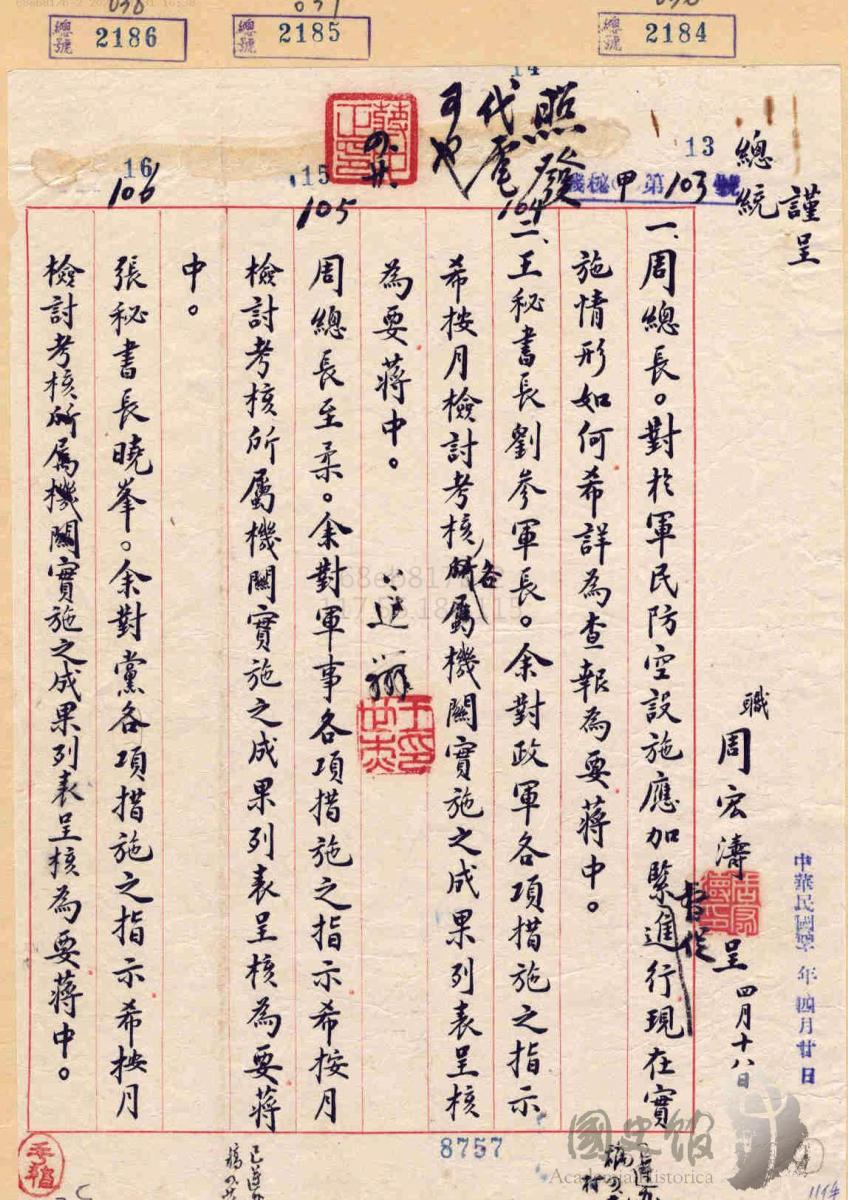 總號 2186
總號 2185
總號 2184
謹呈
總統
職 周宏濤 呈 四月十八日
中華民國 年四月廿日
13
機秘 甲 第 103 號
照發
代電
可也
14
104
15
105
16
106
一、周總長。對於軍民防空設施應加緊進行現在實
督促
施情形如何希詳為查報為要蔣中。
二、王秘書長劉參軍長。余對政軍各項措施之指示
希按月檢討考核所屬機關實施之成果列表呈核
各
為要蔣中。
周總長至柔。余對軍事各項措施之指示希按月
檢討考核所屬機關實施之成果列表呈核為要蔣
中。
張秘書長曉峯。余對黨各項措施之指示希按月
檢討考核所屬機關實施之成果列表呈核為要蔣中。
8757
國史館
Academia Historica